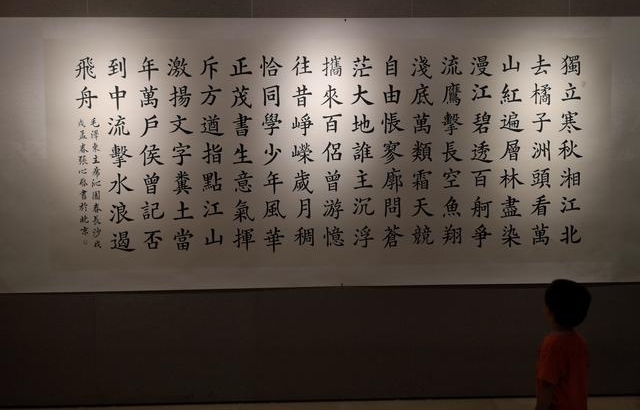 獨立寒秋湘江北
去橘子洲頭看萬
山紅遍層林盡染
漫江碧透百舸爭
流鷹擊長空魚翔
淺底萬類霜天競
自由悵寥廓問蒼
茫大地誰主沉浮
攜來百侶曾游憶
往昔崢嶸歲月稠
恰同學少年風華
正茂書生意氣揮
斥方遒指點江山
激揚文字糞土當
年萬戶侯曾記否
到中流擊水浪遏
飛舟
毛澤東主席沁園春長沙戊
戌孟春張心書於北京